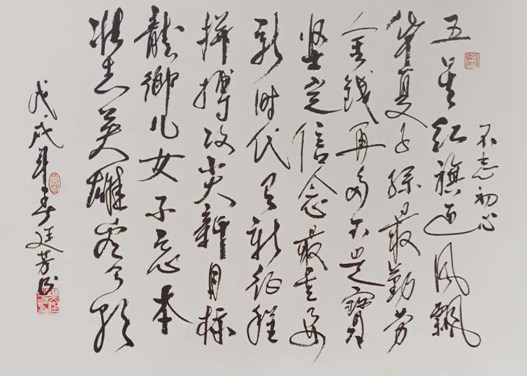 不忘初心
五星红旗迎风飘
华夏子孙最勤劳
金钱再多不是宝
坚定信念最重要
新时代有新征程
拼搏攻尖新目标
龍鄉儿女不忘本
壮志英雄看今朝
戊戌年春廷芳书